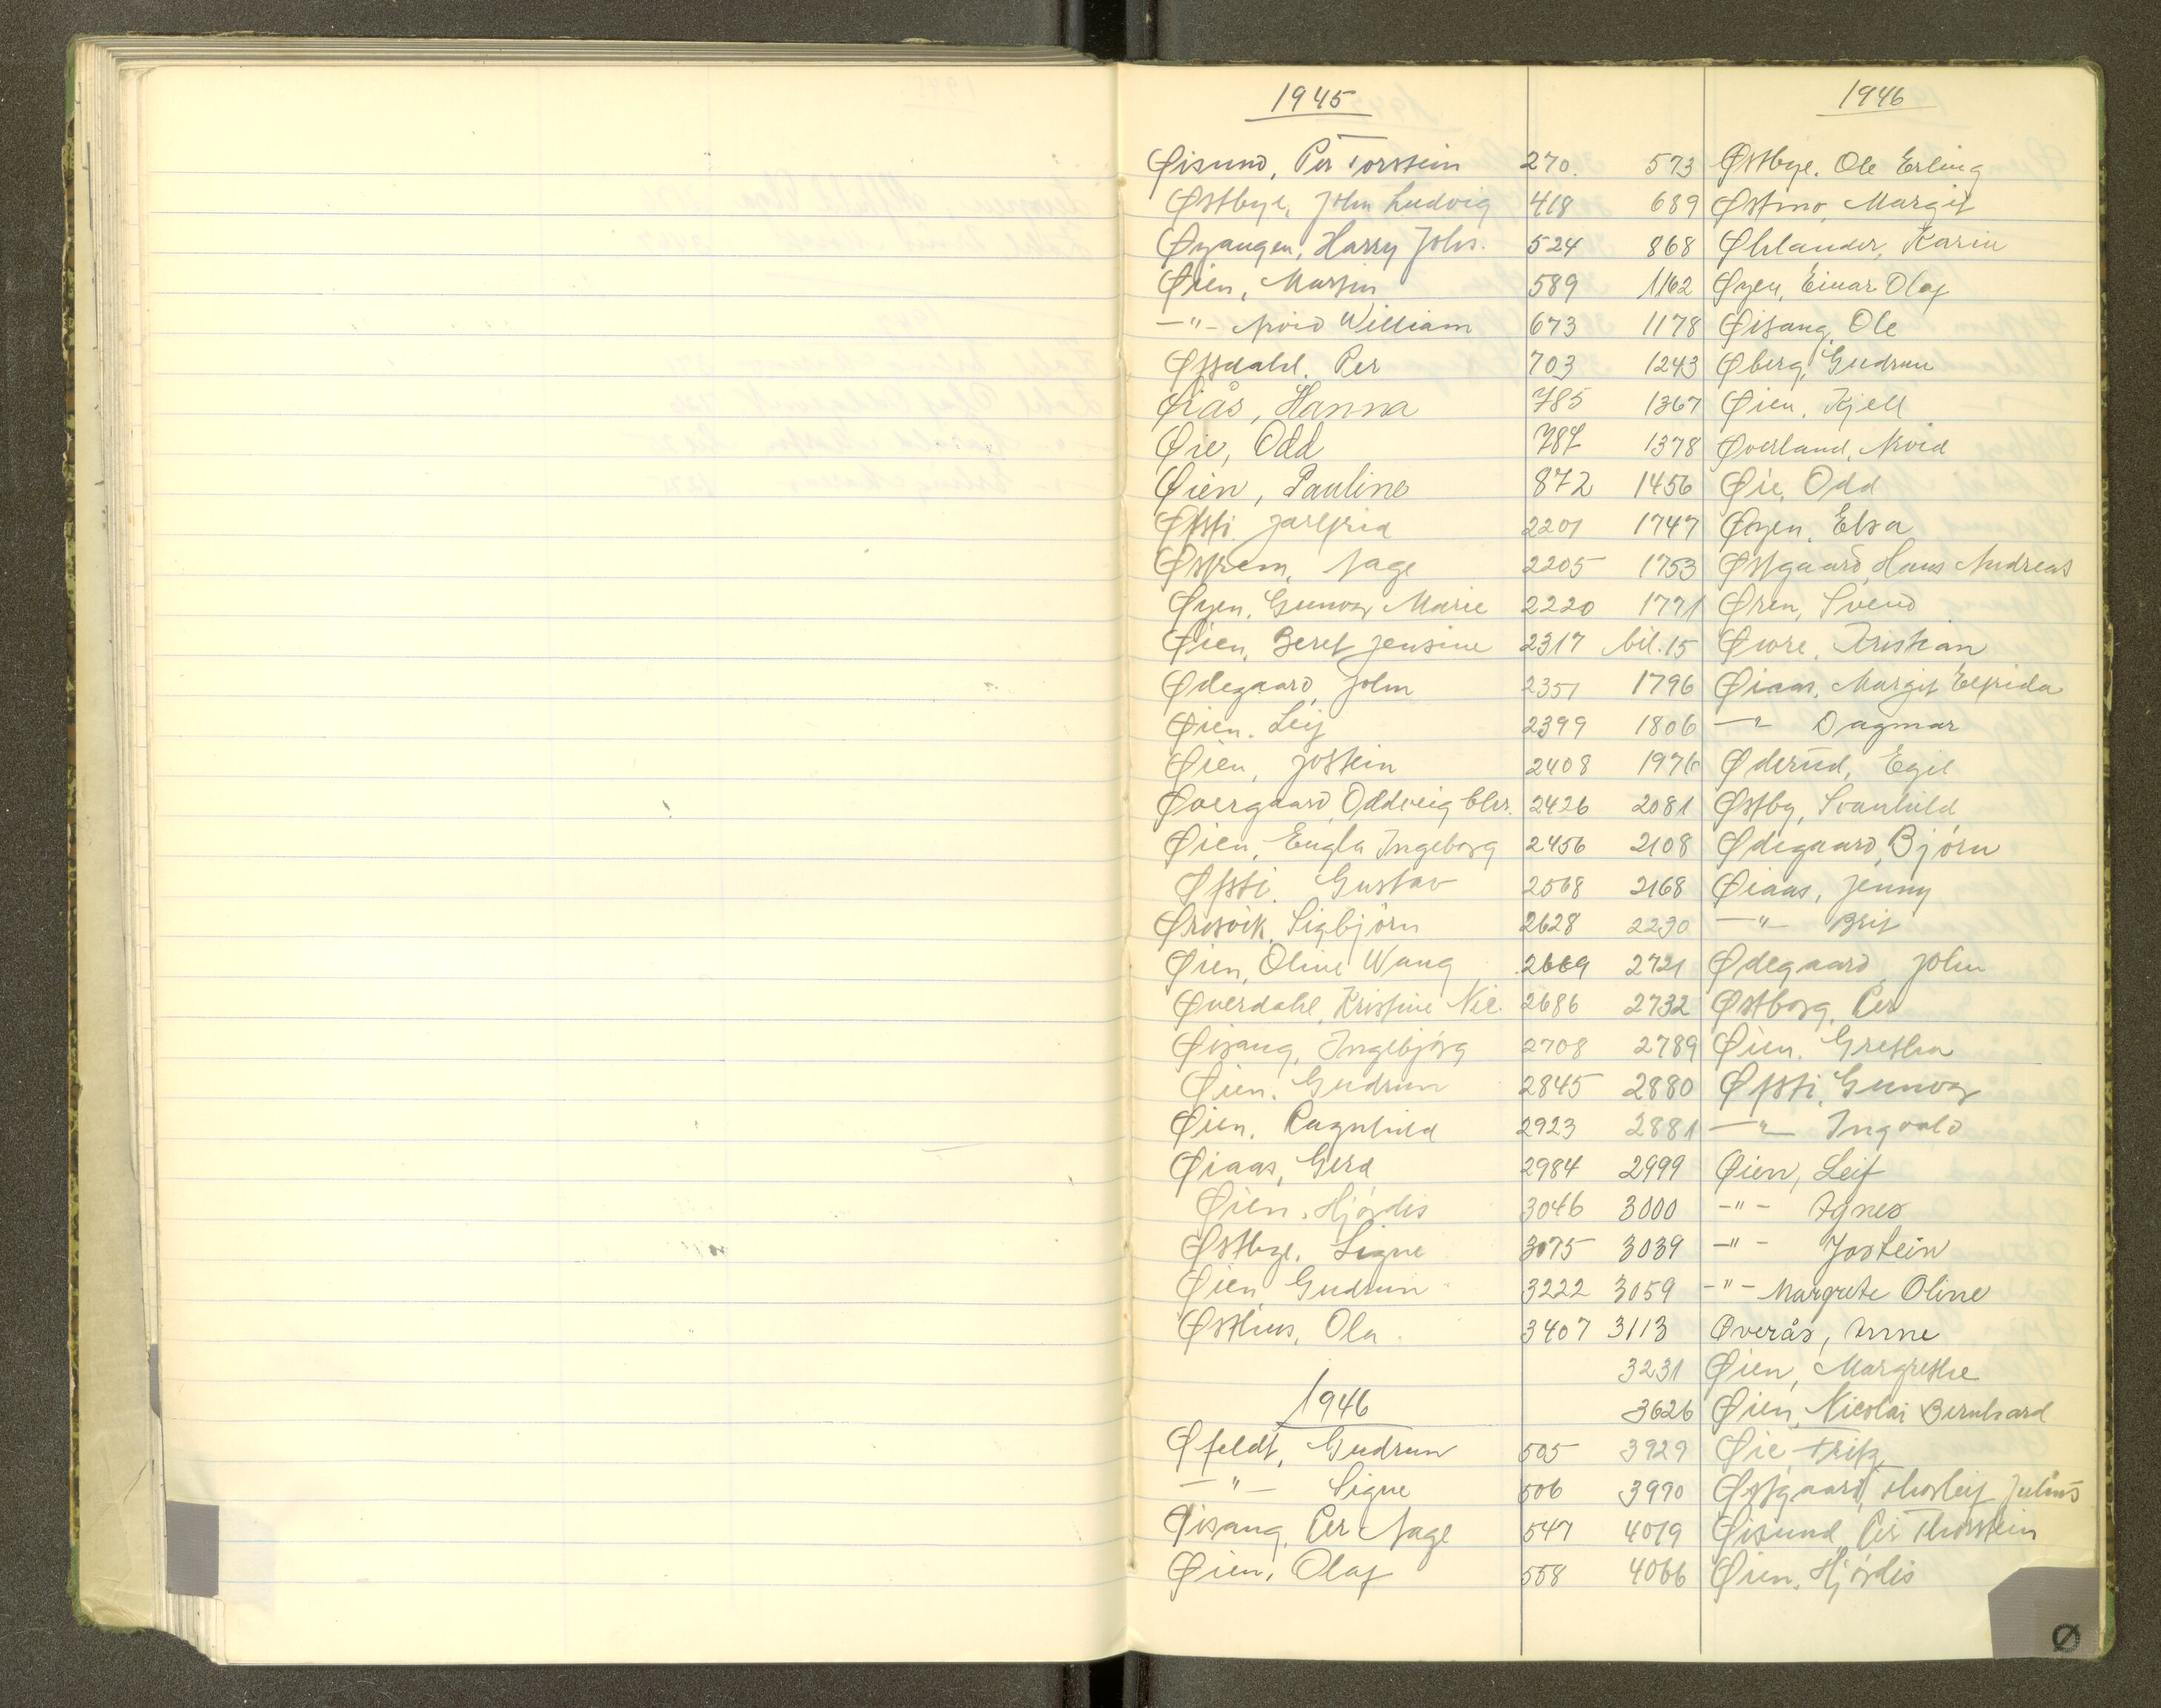 1945
Øisund, Per Torstein 270.
Østbye, John Ludvig 418
Øyangen, Harry Johs. 524
Øien, Martin 589
-"- Arvid William 673
Øfsdahl, Per 703
Øiås, Hanna 785
Øie, Odd 787
Øien, Pauline 872
Øfsti, Jarlfrid 2201
Østrem, Aage 2205
Øyen, Gunvor Marie 2220
Øien, Beret Jensine 2317
Ødegaard, John 2351
Øien, Leif 2399
Øien, Jostein 2408
Øvergaard, Oddveig Chr. 2426
Øien, Engla Ingeborg 2456
Øfsti, Gustav 2568
Ørsvik, Sigbjörn 2628
Øien, Oline Wang 2669
Øverdahl, Kristine Nic. 2686
Øisang, Ingebjørg 2708
Øien, Gudrun 2845
Øien, Ragnhild 2923
Øiaas, Gerd 2984
Øien, Hjördis 3046
Østbye, Signe 3075
Øien Gudrun 3222
Østhus, Ola 3407
1946
Øfeldt, Gudrun 505
-"- Signe 506
Øisang, Per Aage 547
Øien, Olaf 558
1946
573 Østbye, Ole Erling
689 Østmo, Margit
868 Øhlander, Karin
1162 Øyen, Einar Olaf
1178 Øisang, Ole
1243 Øberg, Gudrun
1367 Øien, Kjell
1378 Øverland, Arvid
1456 Øie, Odd
1747 Øyen, Elsa
1753 Østgaard, Hans Andreas
1771 Øren, Svend
bil.15 Øwre, Kristian
1796 Øiaas, Margit Elfrida
1806 -"- Dagmar
1976 Øderud, Egil
2081 Østby, Svanhild
2108 Ødegaard, Bjørn
2168 Øiaas, Jenny
2230 -"- Brit
2721 Ødegaard, John
2732 Østborg, Per
2789 Øien, Grethe
2880 Øfsti, Gunvor
2881 -"- Ingvald
2999 Øien, Leif
3000 -"- Agnes
3039 -"- Jostein
3059 -"- Margrete Oline
3113 Øverås, Anne
3231 Øien, Margrethe
3626 Øien, Nicolai Bernhard
3929 Øie, Fritz
3990 Østgaard, Thorleif Julius
4019 Øisund, Per Thorstein
4066 Øien, Hjördis
Ø